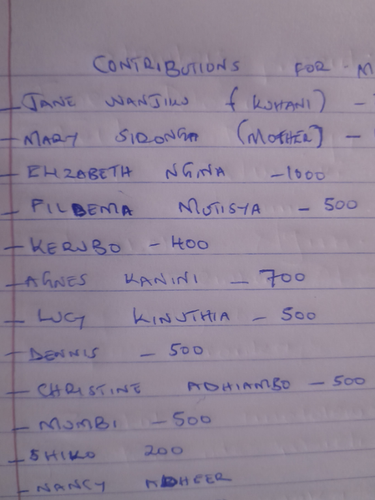 CONTRIBUTIONS FOR - M
- JANE WANJIKU (KUHANI) -
- MARY SIRONGA (MOTHER) -
- ELIZABETH NGINA - 1000
- PILDEMA MUTISYA - 500
- KERUBO - 400
- AGNES KANINI - 700
- LUCY KINUTHIA - 500
- DENNIS - 500
- CHRISTINE ADHIAMBO - 500
- MUMBI - 500
- SHIKO 200
- NANCY ADHEER